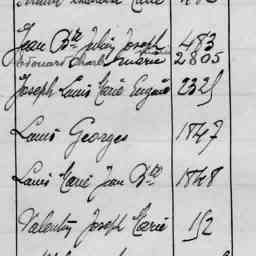 Jean Bte Julien Joseph 483
Edouard Charles Marie 2805
Joseph Louis Marie Eugène 2325
Louis Georges 1847
Louis Marie Jean Bte 1848
Valentin Joseph Marie 152